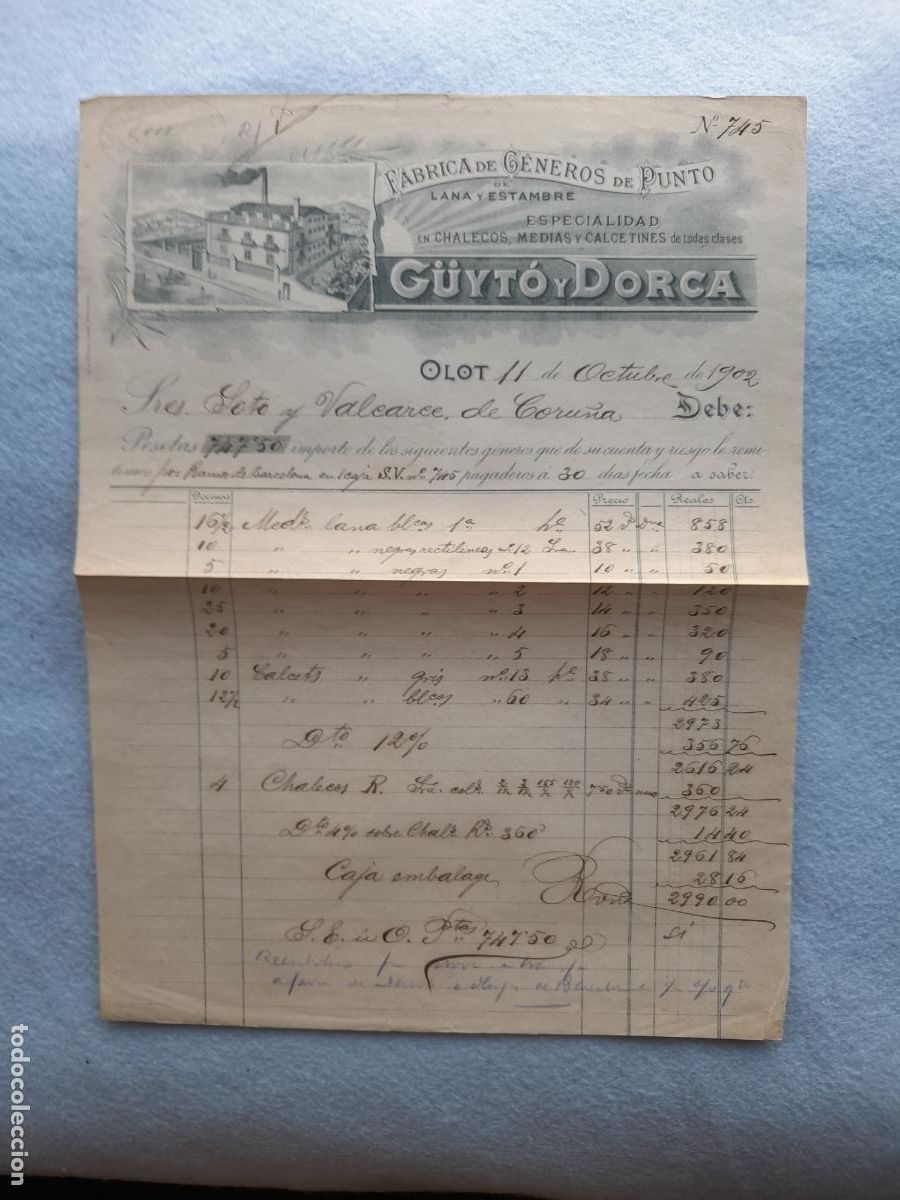 Nº 745
FÁBRICA DE GÉNEROS DE PUNTO
DE
LANA Y ESTAMBRE
ESPECIALIDAD
EN CHALECOS, MEDIAS Y CALCETINES de todas clases
GÜYTÓ Y DORCA
OLOT 11 de Octubre de 1902
Sres. Soto y Valcarce, de Coruña Debe:
Pesetas 747'50 importe de los siguientes géneros que de su cuenta y riesgo le remi-
timos por de Barcelona en 1 caja S.V. nº 745 pagaderos á 30 dias fecha a saber:
Docenas Precio Reales Cts.
16 1/2 Meds lana blcas 1a 52 858
10 " " negras rectilineas nº 12 38 " " 380
5 " " negras nº 1 10 " " 50
10 " " " " 2 12 " " 120
25 " " " " 3 14 " " 350
20 " " " " 4 16 " " 320
5 " " " " 5 18 " " 90
10 Calcets " gris nº 13 38 " " 380
12 1/2 " " blcos " 60 " 34 " " 425
2973
Dto 12% 356 76
2616 24
4 Chalecos R. 360
2976 24
Dto 4% sobre Chals 360 14 40
2961 84
Caja embalage 28 16
2990 00
S. E. ú O. Ptas 747'50
todocoleccion